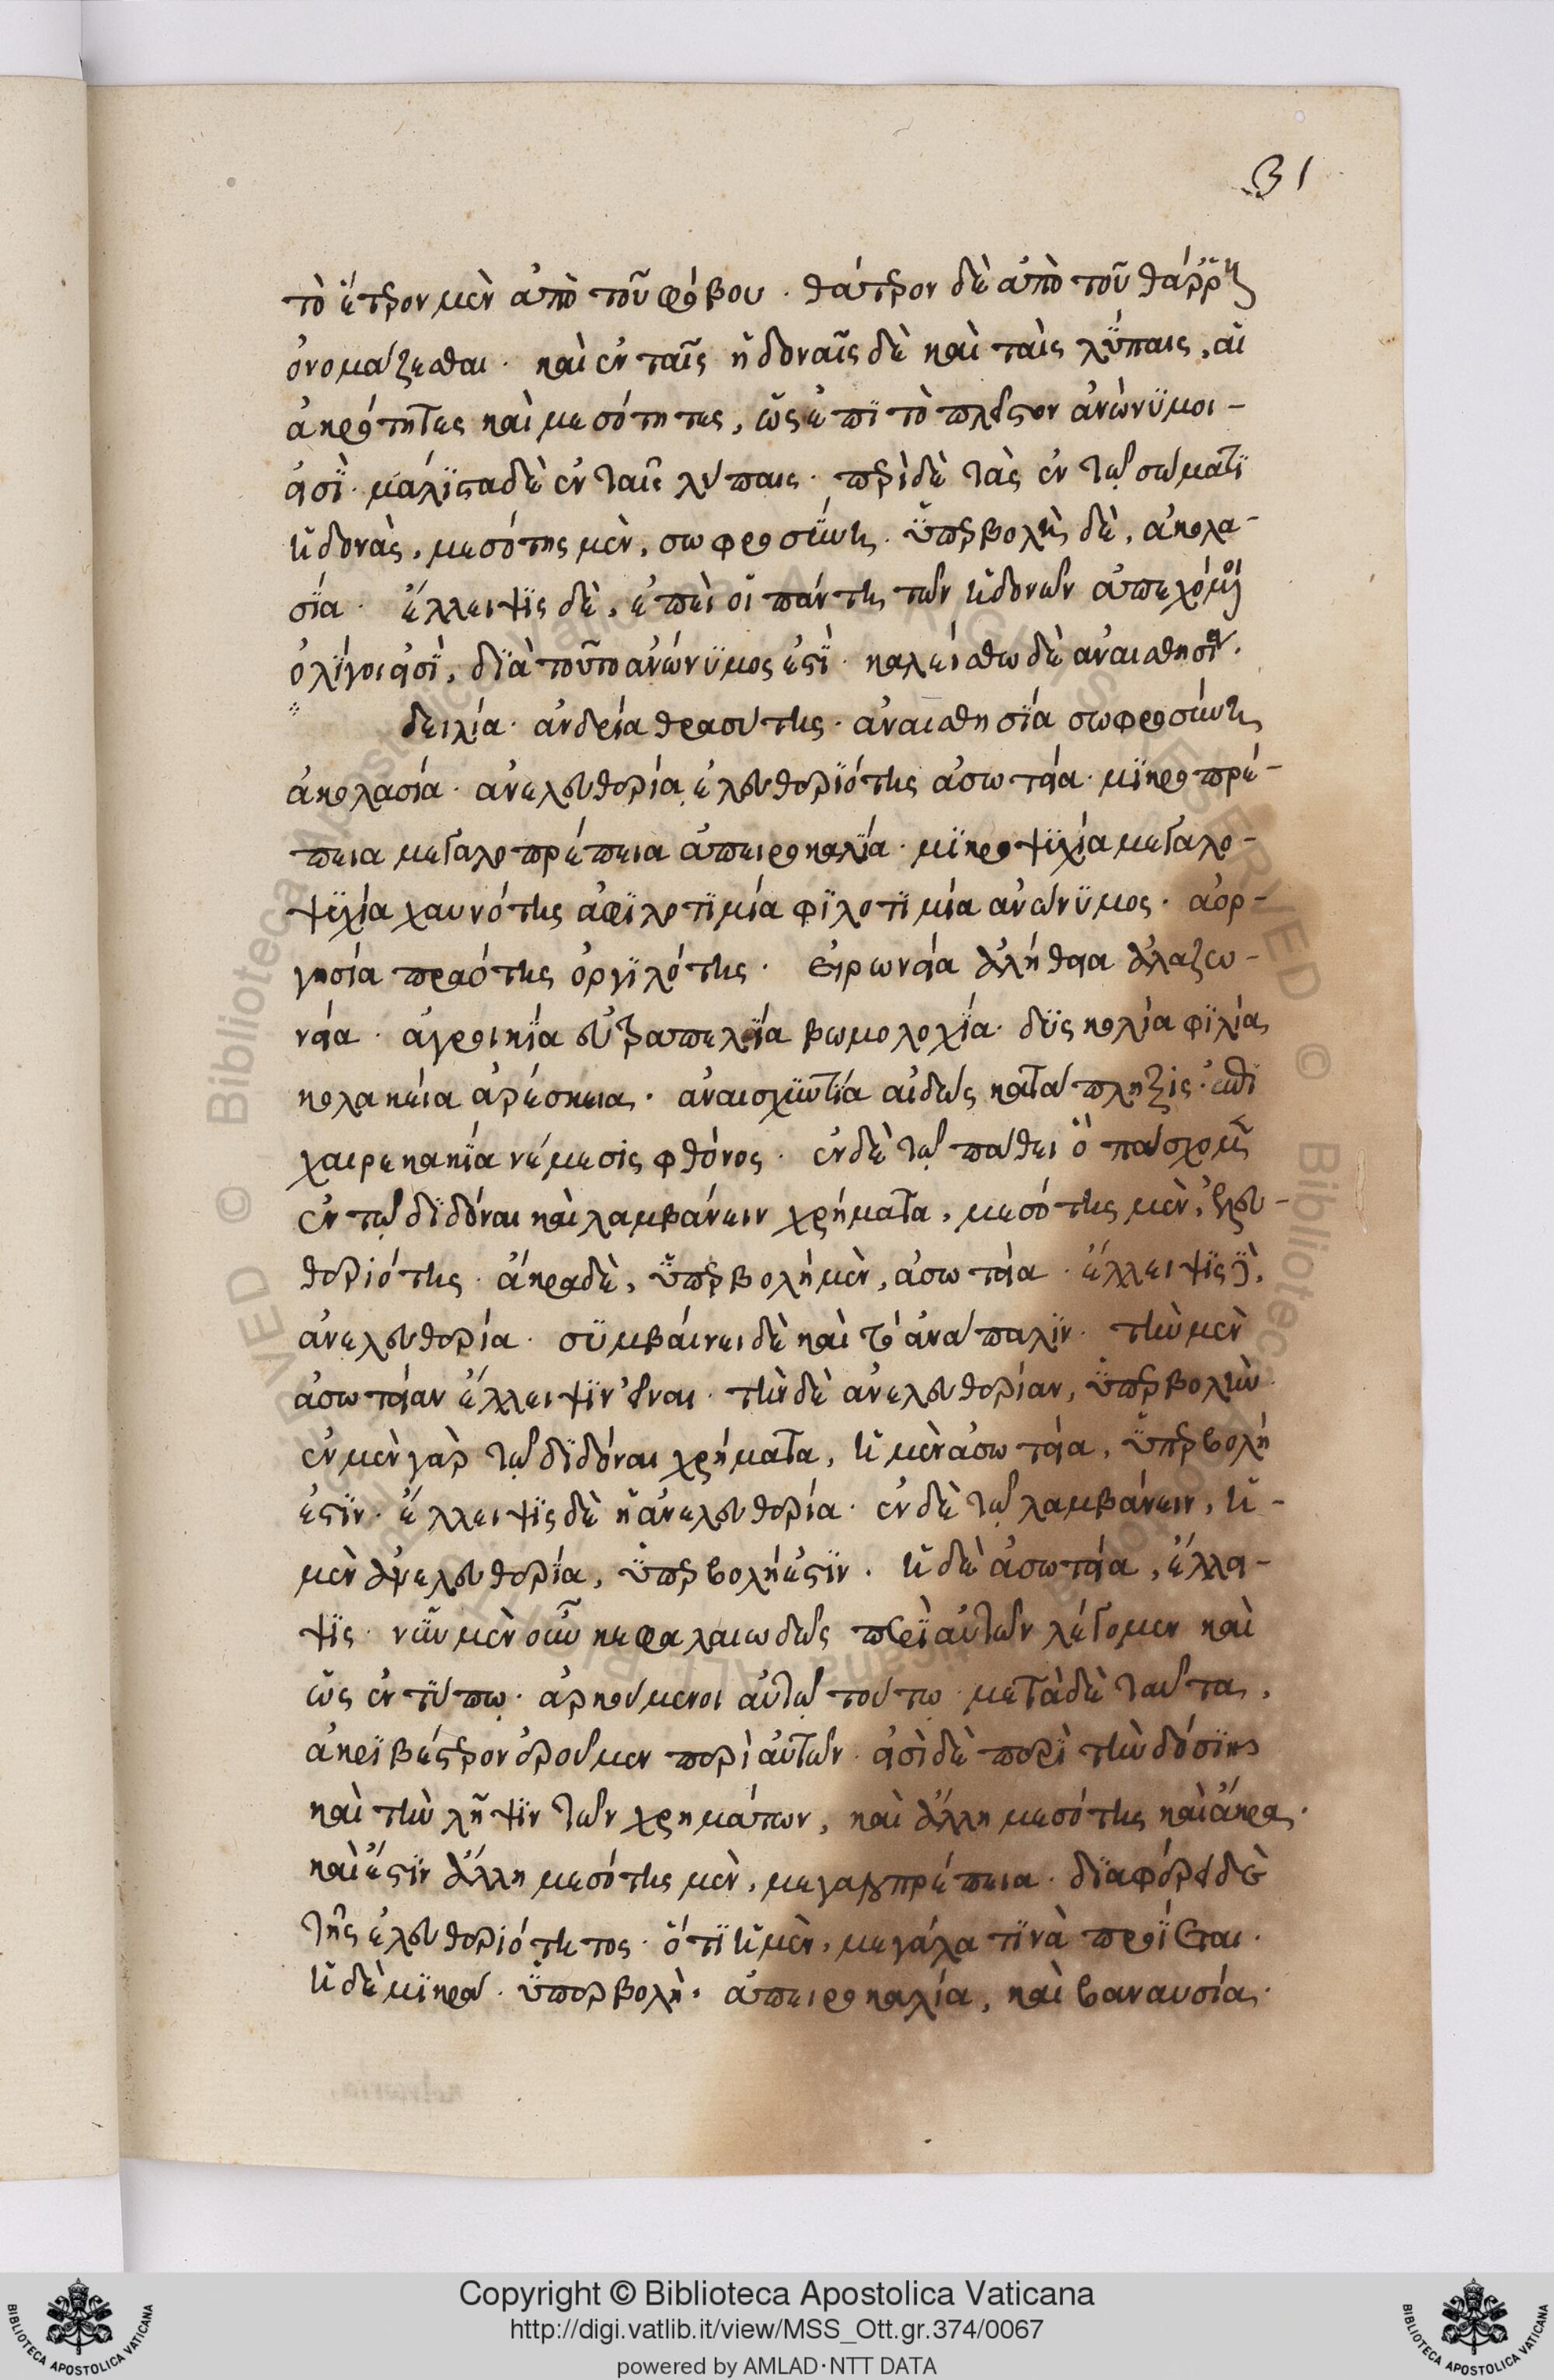 31
τὸ ἕτερον μὲν ἀπὸ τοῦ φόβου · θάτερον δὲ ἀπὸ τοῦ θάρρους
ὀνομάζεσθαι · καὶ ἐν ταῖς ἡδοναῖς δὲ καὶ ταὶς λύπαις, αἱ
ἀκρότητες καὶ μεσότητες, ὡς ἐπὶ τὸ πλεῖστον ἀνώνυμοι -
εἰσὶ · μάλιστα δὲ ἐν ταῖς λύπαις · περὶ δὲ τὰς ἐν τῷ σώματι
ἡδονὰς, μεσότης μὲν, σωφροσύνη · ὑπερβολὴ δὲ, ἀκολα -
σία · ἔλλειψις δὲ, ἐπεὶ οἱ πάντη τῶν ἡδονῶν ἀπεχόμενοι
ὀλίγοι εἰσὶ, διὰ τοῦτο ἀνώνυμος ἐστὶ · καλείσθω δὲ ἀναισθησία ·
δειλία · ἀνδρία θρασύτης · ἀναισθησία σωφροσύνη
ἀκολασία · ἀνελευθερία, ἐλευθεριότης ἀσωτεία · μικροπρέ -
πεια μεγαλοπρέπεια ἀπειροκαλία · μικροψυχία μεγαλο -
ψυχία χαυνότης ἀφιλοτιμία φιλοτιμία ἀνώνυμος · ἀορ -
γησία πραότης ὀργιλότης · εἰρωνεία ἀλήθεια ἀλαζω -
νεία · ἀγροικία εὐτραπελία βωμολοχία · δυσκολία φιλία
κολακεία ἀρέσκεια · ἀναισχυντία αἰδὼς κατάπληξις · ἐπι
χαιρεκακία νέμεσις φθόνος · ἐν δὲ τῷ πάθει ὃ πάσχομεν
ἐν τῷ διδόναι καὶ λαμβάνειν χρήματα, μεσότης μὲν, ἐλευ -
θεριότης · ἄκρα δὲ, ὑπερβολὴ μὲν, ἀσωτεία · ἔλλειψις δὲ,
ἀνελευθερία · συμβαίνει δὲ καὶ τὸ ἀνάπαλιν · τὴν μὲν
ἀσωτείαν ἔλλειψιν εἶναι · τὴν δὲ ἀνελευθερίαν, ὑπερβολήν ·
ἐν μὲν γὰρ τῷ διδόναι χρήματα, ἡ μὲν ἀσωτεία, ὑπερβολή
ἐστιν · ἔλλειψις δὲ ἡ ἀνελευθερία · ἐν δὲ τῷ λαμβάνειν, ἡ -
μὲν ἀνελευθερία, ὑπερβολή ἐστιν · ἡ δὲ ἀσωτεία, ἔλλει -
ψις · νῦν μὲν οὖν κεφαλαιωδῶς περὶ αὐτῶν λέγομεν καὶ
ὡς ἐν τύπῳ · ἀρκούμενοι αὐτῷ τούτῳ · μετὰ δὲ ταῦτα,
ἀκριβέστερον ἐροῦμεν περὶ αὐτῶν · εἰσὶ δὲ περὶ τὴν δόσιν
καὶ τὴν λῆψιν τῶν χρημάτων, καὶ ἄλλη μεσότης καὶ ἄκρα ·
καὶ ἔστιν ἄλλη μεσότης μὲν, μεγαλοπρέπεια · διαφέρει δὲ
τῆς ἐλευθεριότητος · ὅτι ἡ μὲν, μεγάλα τινὰ προΐεται ·
ἡ δὲ μικρά · ὑπερβολὴ · ἀπειροκαλία, καὶ βαναυσία ·
Copyright © Biblioteca Apostolica Vaticana
http://digi.vatlib.it/view/MSS_Ott.gr.374/0067
powered by AMLAD·NTT DATA